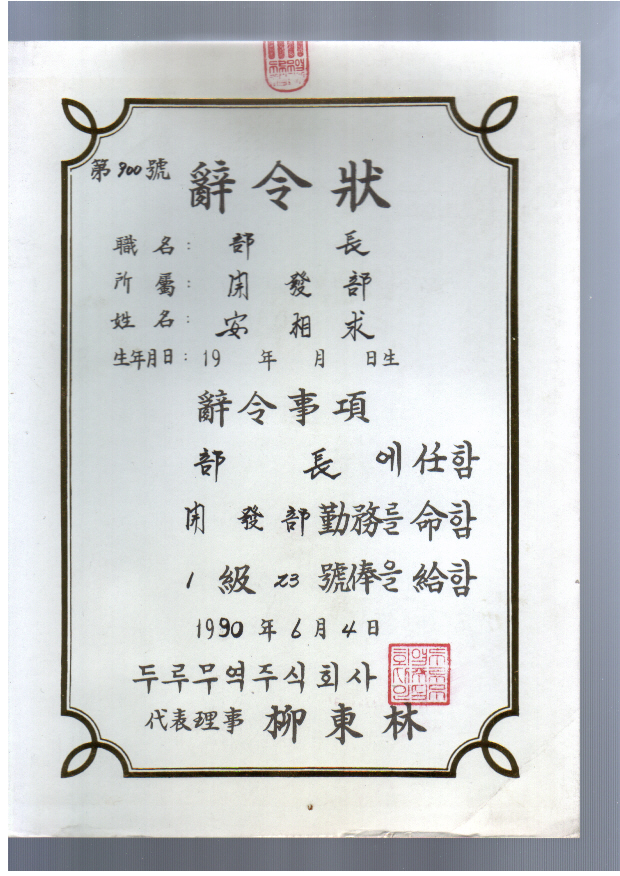 第900號 辭令狀
職名: 部長
所屬: 開發部
姓名: 安相求
生年月日: 19 年 月 日生
辭令事項
部長에任함
開發部勤務를命함
1級23號俸을給함
1990年6月4日
두루무역주식회사
代表理事 柳東林